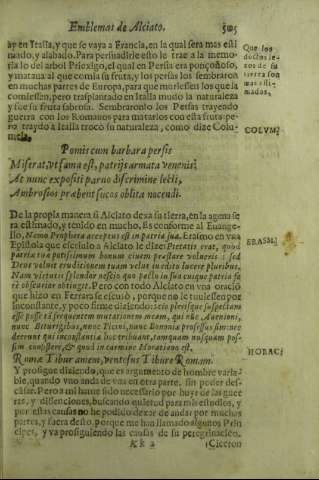 Emblemas de Alciato. 505
ap en Italia, y que se vaya a Francia, en la qual sera mas esti
mado, y alabado. Para persuadirle esto le trae a la memo-
ria lo del arbol Priexigo, el qual en Persia era ponçoñoso,
y mataua al que comia su fruta, y los persas los sembraron
en muchas partes de Europa, para que muriessen los que la
comiessen, pero trasplantado en Italia mudo la naturaleza
y fue su fruta sabrosa. Sembraronlo los Persas trayendo
guerra con los Romanos para matarlos con esta fruta: pe-
ro traydo a Italia trocò su naturaleza, como dize Colu-
mela.
Que los
doctos le-
xos de su
tierra son
mas esti-
mados,
COLVM;
Pomis cum barbara persis
Miserat, vt fama est, patrijs armata venenis:
At nunc expositi paruo discrimine lethi,
Ambrosios præbent sucos oblita nocendi.
De la propia manera si Alciato dexa su tierra, en la agena se
ra estimado, y tenido en mucho. Es conforme al Euange-
lio, Nemo Propheta acceptus est in patria sua. Erasmo en vna
Epistola que escriuio a Alciato le dize: Pietatis erat, quod
patria tua potissimum bonum ciuem præstare volueris: sed
Deus voluit eruditionem tuam velut in edito lucere pluribus.
Nam virtutis splendor nescio quo pacto in sua cuique patria fe
rè obscurior obtingit. Pero con todo Alciato en vna oració
que hizo en Ferrara se escusò, porque no le tuuiessen por
inconstante, y poco firme diziendo: scio plerisque suspectam
esse posse tã frequentem mutationem meam, qui nec Auenioni,
nunc Biturigibus, nunc Ticini, nunc Bononiæ professus sim: nec
deerunt qui inconstantiæ hoc tribuant, tamquam nusquam pos-
sim consistere, & quod in carmine Horatiano est.
ERASM;
HORAC;
Romæ Tibur amem, ventosus Tibure Romam.
Y prosigue diziendo, que es argumento de hombre varia-
ble, quando vno anda de vna en otra parte, sin poder des-
cãsar. Pero a mi hame sido necessario por huyr de las guer
ras, y dissenciones, buscando quietud para mis estudios, y
por estas causas no he podido dexar de andar por muchos
partes, y fuera desto, porque me han llamado algunos Prin
cipes, y va prosiguiendo las causas de su peregrinacion.
Kk 2 (Ciceron